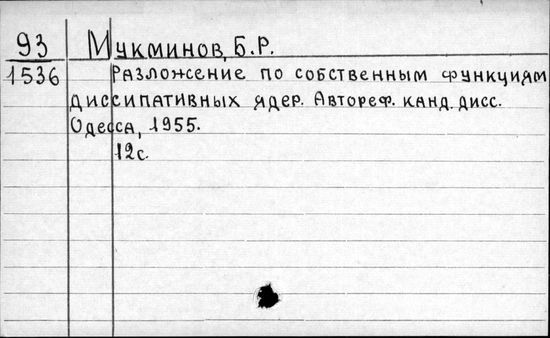 93 Мукминов, Б.Р.
1536 Разложение по собственным функциям
диссипативных ядер. Автореф. канд. дисс.
Одесса, 1955.
12с.